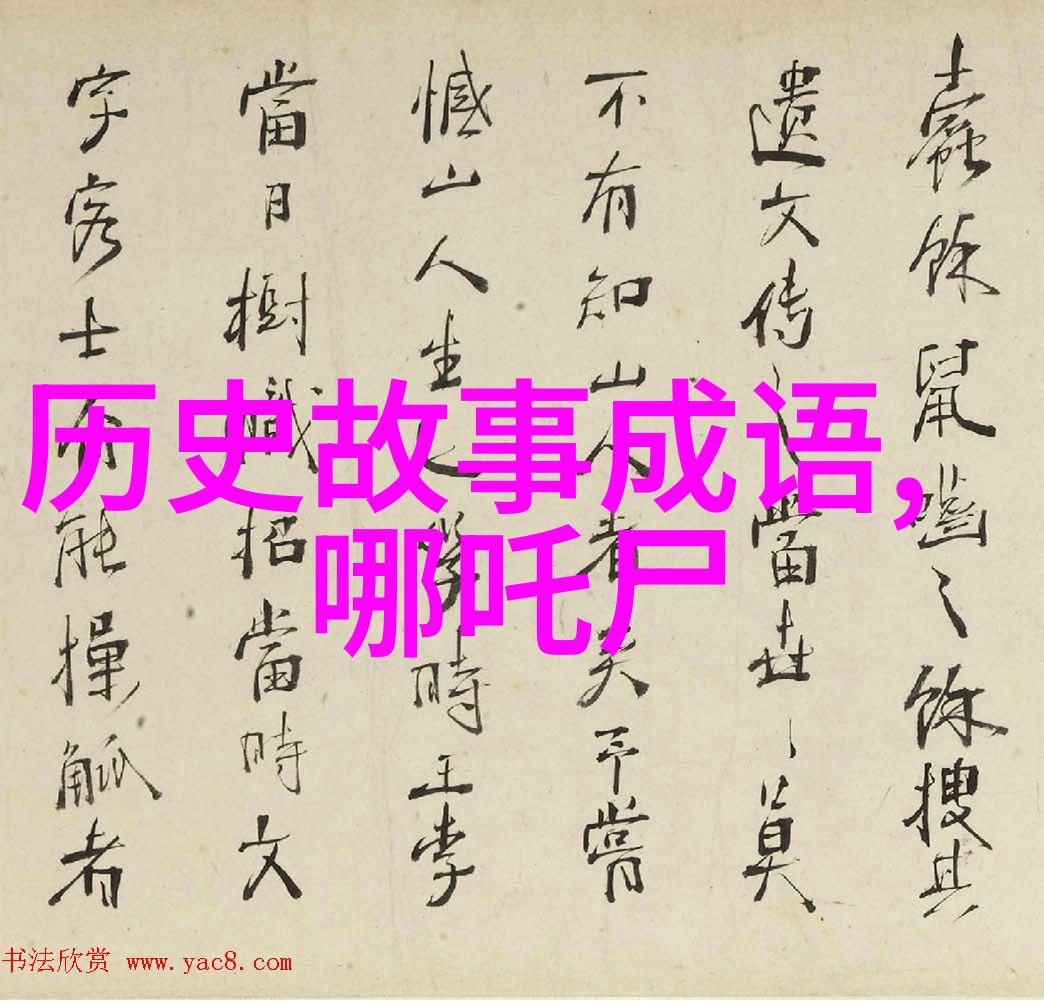 历史故事成语,
哪吒尸
蠹餘鼠嚙之餘搜其
遺文传之當世之莫
不有知山人者矣予嘗
憾山人生時王李
當日樹幟招當時文
字客士能操觚者
书法欣赏 www.yac8.com